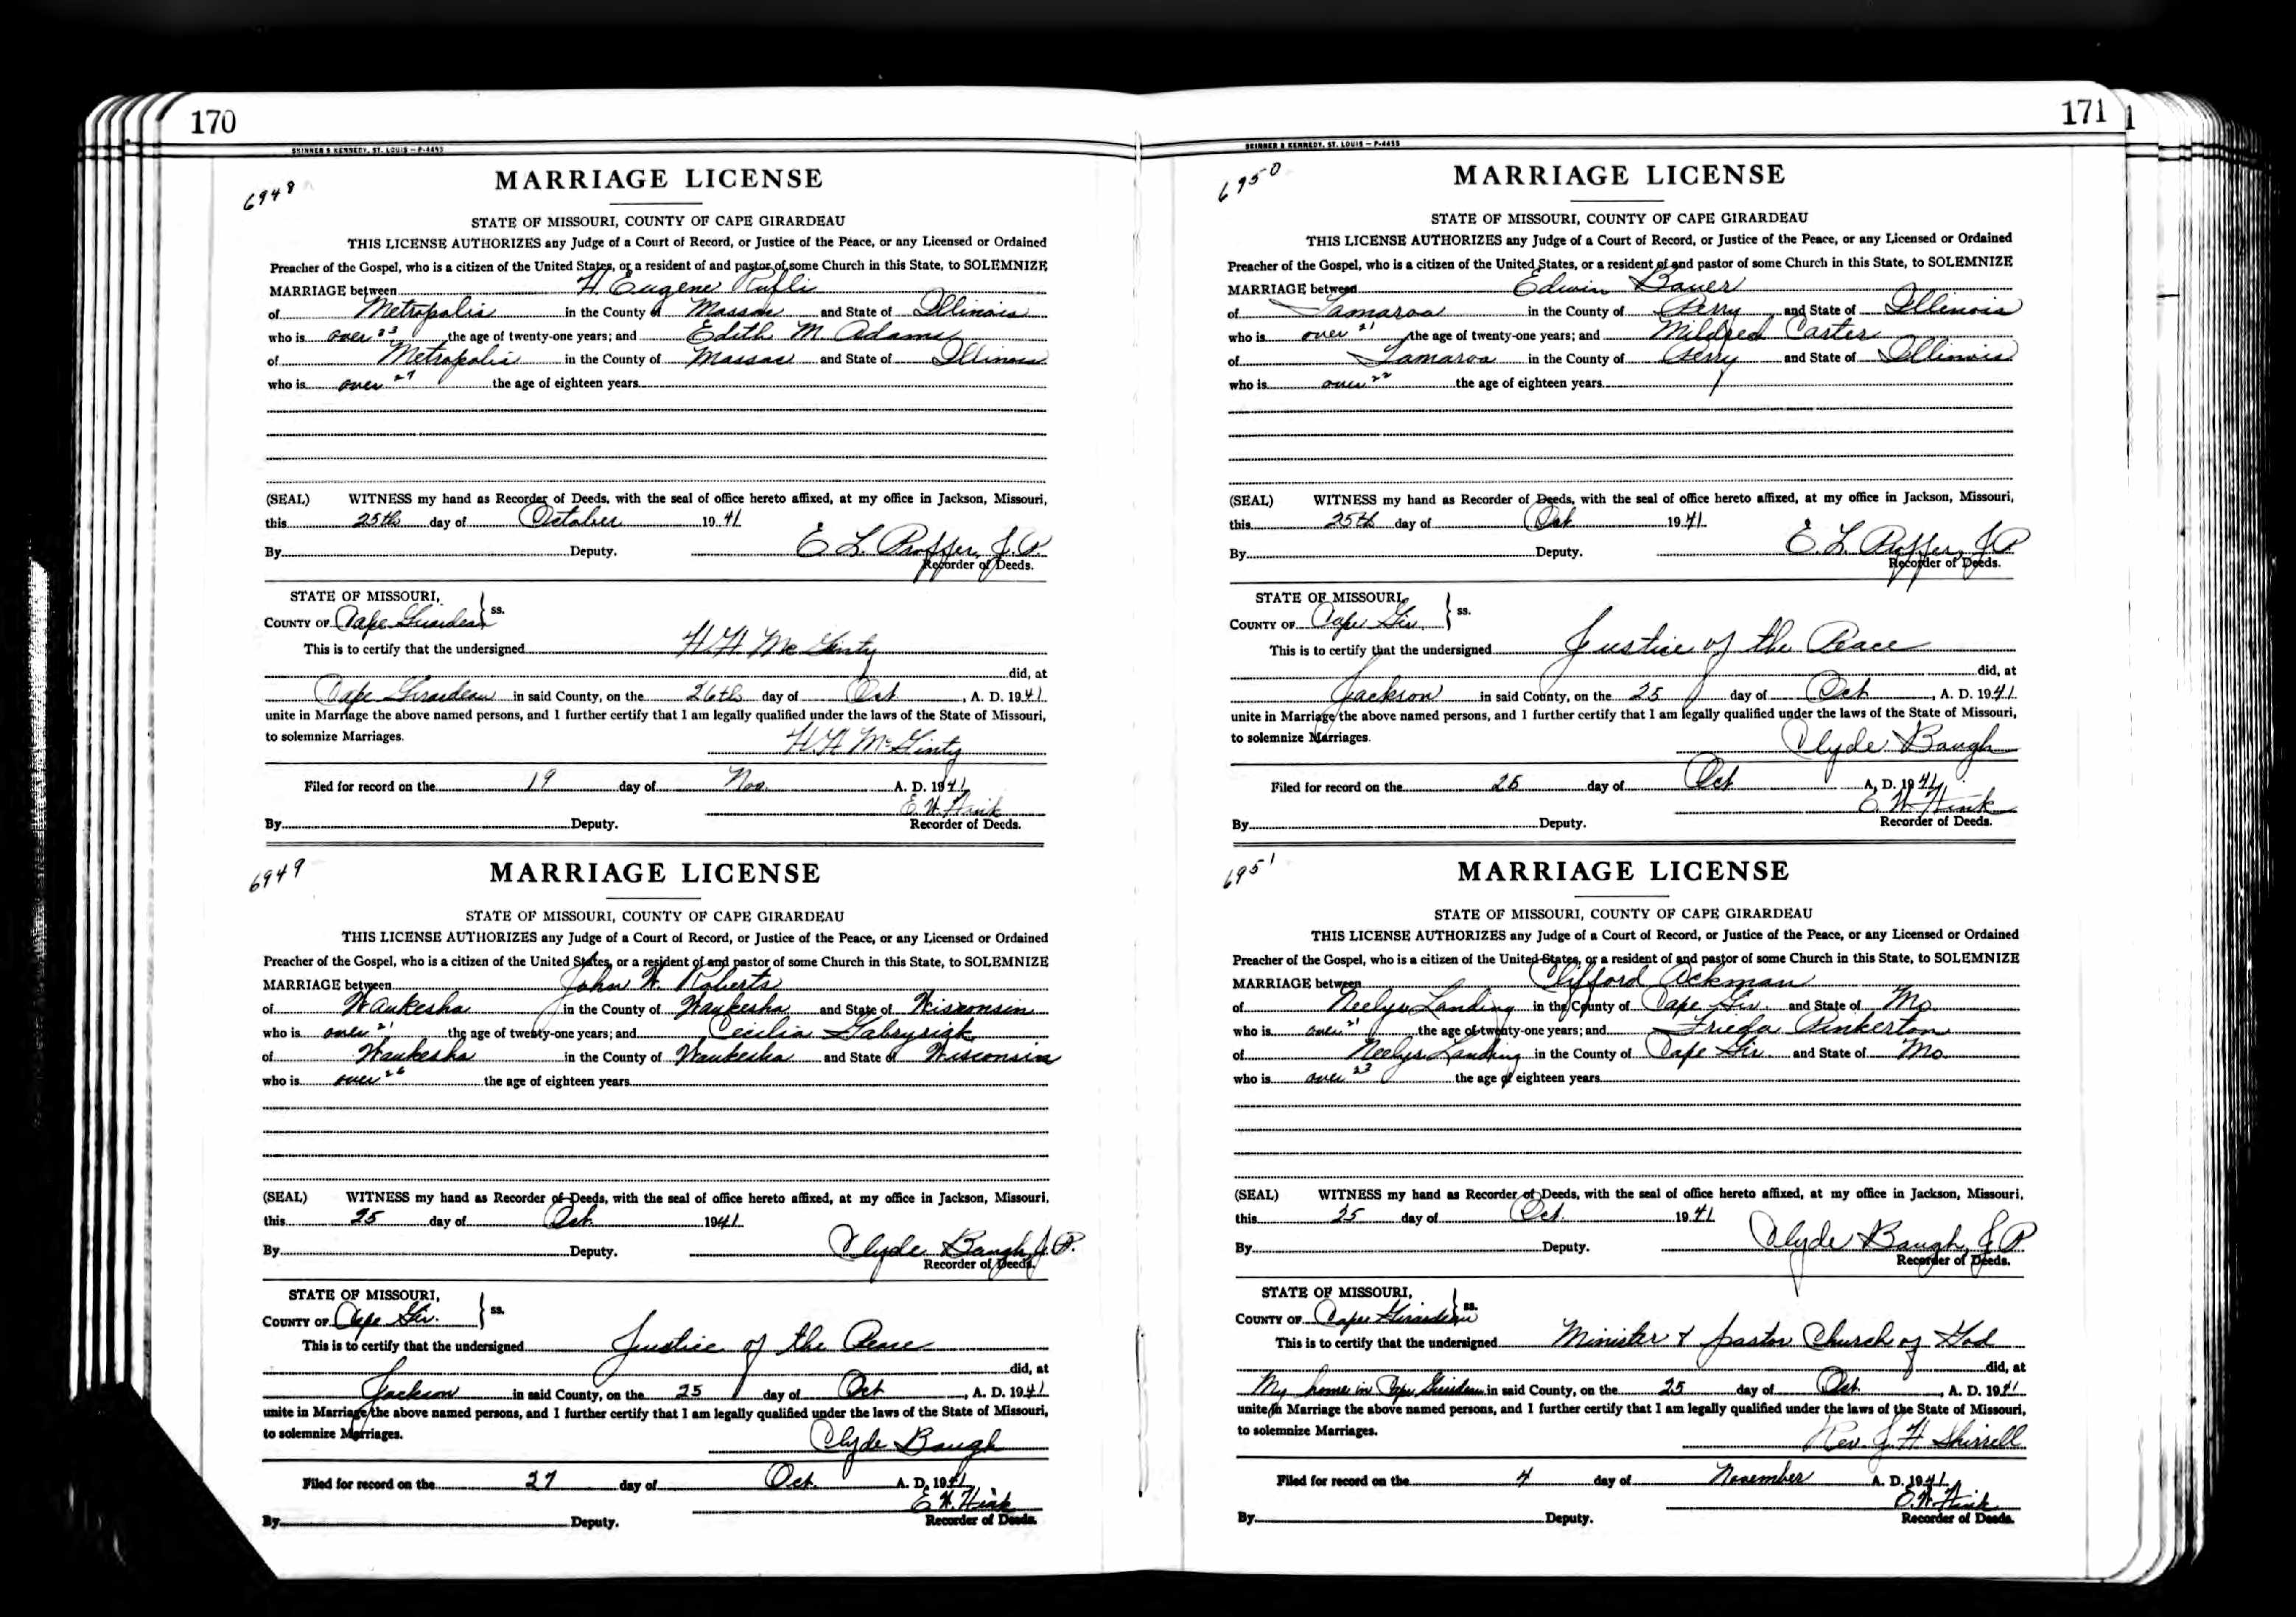 170
SKINNER & KENNEDY, ST. LOUIS — P-4455
6948
MARRIAGE LICENSE
STATE OF MISSOURI, COUNTY OF CAPE GIRARDEAU
THIS LICENSE AUTHORIZES any Judge of a Court of Record, or Justice of the Peace, or any Licensed or Ordained
Preacher of the Gospel, who is a citizen of the United States, or a resident of and pastor of some Church in this State, to SOLEMNIZE
MARRIAGE between H. Eugene Rufli
of Metropolis in the County of Massac and State of Illinois
who is over 23 the age of twenty-one years; and Edith M. Adams
of Metropolis in the County of Massac and State of Illinois
who is over 27 the age of eighteen years
(SEAL) WITNESS my hand as Recorder of Deeds, with the seal of office hereto affixed, at my office in Jackson, Missouri,
this 25th day of October 1941
By Deputy. E. L. Proffer, J.P.
Recorder of Deeds.
STATE OF MISSOURI,
COUNTY OF Cape Girardeau ss.
This is to certify that the undersigned H. H. McGinty
did, at
Cape Girardeau in said County, on the 26th day of Oct, A. D. 1941
unite in Marriage the above named persons, and I further certify that I am legally qualified under the laws of the State of Missouri,
to solemnize Marriages.
H. H. McGinty
Filed for record on the 19 day of Nov. A. D. 1941
E. W. Hink
By Deputy. Recorder of Deeds.
6949
MARRIAGE LICENSE
STATE OF MISSOURI, COUNTY OF CAPE GIRARDEAU
THIS LICENSE AUTHORIZES any Judge of a Court of Record, or Justice of the Peace, or any Licensed or Ordained
Preacher of the Gospel, who is a citizen of the United States, or a resident of and pastor of some Church in this State, to SOLEMNIZE
MARRIAGE between John W. Roberts
of Waukesha in the County of Waukesha and State of Wisconsin
who is over 21 the age of twenty-one years; and Cecilia Gabrysiak
of Waukesha in the County of Waukesha and State of Wisconsin
who is over 26 the age of eighteen years
(SEAL) WITNESS my hand as Recorder of Deeds, with the seal of office hereto affixed, at my office in Jackson, Missouri,
this 25 day of Oct. 1941
By Deputy. Clyde Baugh, J.P.
Recorder of Deeds.
STATE OF MISSOURI,
COUNTY OF Cape Gir. ss.
This is to certify that the undersigned Justice of the Peace
did, at
Jackson in said County, on the 25 day of Oct, A. D. 1941
unite in Marriage the above named persons, and I further certify that I am legally qualified under the laws of the State of Missouri,
to solemnize Marriages.
Clyde Baugh
Filed for record on the 27 day of Oct. A. D. 1941
E. W. Hink
By Deputy. Recorder of Deeds.
171
SKINNER & KENNEDY, ST. LOUIS — P-4455
6950
MARRIAGE LICENSE
STATE OF MISSOURI, COUNTY OF CAPE GIRARDEAU
THIS LICENSE AUTHORIZES any Judge of a Court of Record, or Justice of the Peace, or any Licensed or Ordained
Preacher of the Gospel, who is a citizen of the United States, or a resident of and pastor of some Church in this State, to SOLEMNIZE
MARRIAGE between Edwin Bauer
of Tamaroa in the County of Perry and State of Illinois
who is over 21 the age of twenty-one years; and Mildred Carter
of Tamaroa in the County of Perry and State of Illinois
who is over 22 the age of eighteen years
(SEAL) WITNESS my hand as Recorder of Deeds, with the seal of office hereto affixed, at my office in Jackson, Missouri,
this 25th day of Oct 1941
By Deputy. E. L. Proffer, J P
Recorder of Deeds.
STATE OF MISSOURI,
COUNTY OF Cape Gir. ss.
This is to certify that the undersigned Justice of the Peace
did, at
Jackson in said County, on the 25 day of Oct, A. D. 1941
unite in Marriage the above named persons, and I further certify that I am legally qualified under the laws of the State of Missouri,
to solemnize Marriages.
Clyde Baugh
Filed for record on the 25 day of Oct A. D. 1941
E W Hink
By Deputy. Recorder of Deeds.
6951
MARRIAGE LICENSE
STATE OF MISSOURI, COUNTY OF CAPE GIRARDEAU
THIS LICENSE AUTHORIZES any Judge of a Court of Record, or Justice of the Peace, or any Licensed or Ordained
Preacher of the Gospel, who is a citizen of the United States, or a resident of and pastor of some Church in this State, to SOLEMNIZE
MARRIAGE between Clifford Ackman
of Neelys Landing in the County of Cape Gir. and State of Mo.
who is over 21 the age of twenty-one years; and Frieda Pinkerton
of Neelys Landing in the County of Cape Gir. and State of Mo.
who is over 23 the age of eighteen years
(SEAL) WITNESS my hand as Recorder of Deeds, with the seal of office hereto affixed, at my office in Jackson, Missouri,
this 25 day of Oct. 1941
By Deputy. Clyde Baugh, J P
Recorder of Deeds.
STATE OF MISSOURI,
COUNTY OF Cape Girardeau ss.
This is to certify that the undersigned Minister & pastor Church of God
did, at
My home in Cape Girardeau in said County, on the 25 day of Oct., A. D. 1941
unite in Marriage the above named persons, and I further certify that I am legally qualified under the laws of the State of Missouri,
to solemnize Marriages.
Rev. J. H. Shirrell
Filed for record on the 4 day of November A. D. 1941
E. W. Hink
By Deputy. Recorder of Deeds.